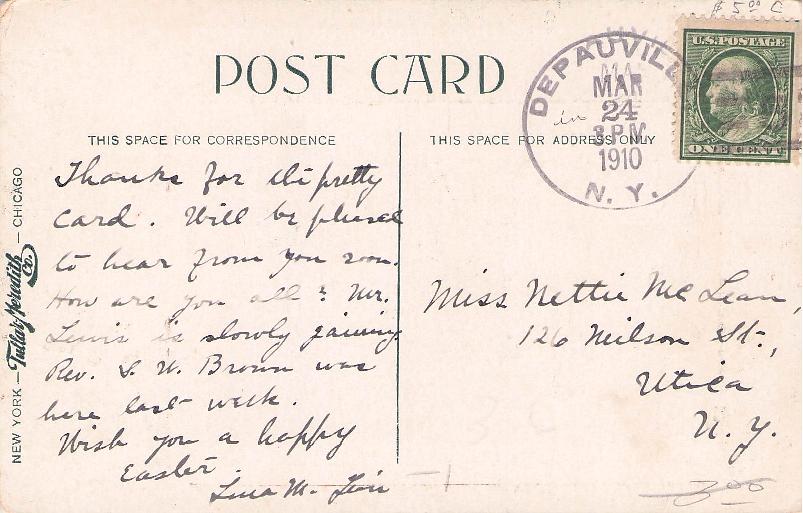 $ 5 00 C
POST CARD
U.S. POSTAGE
ONE CENT
DEPAUVILLE
MAR
24
3 PM
1910
N. Y.
THIS SPACE FOR CORRESPONDENCE
THIS SPACE FOR ADDRESS ONLY
Thanks for the pretty
card. Will be pleased
to hear from you soon.
How are you all? Mr.
Lewis is slowly gaining.
Rev. S. W. Brown was
here last week.
Wish you a happy
Easter.
M. Lewis
Miss Nettie McLean,
126 Neilson St.,
Utica
N. Y.
3 00
NEW YORK – Tullar-Meredith Co. – CHICAGO